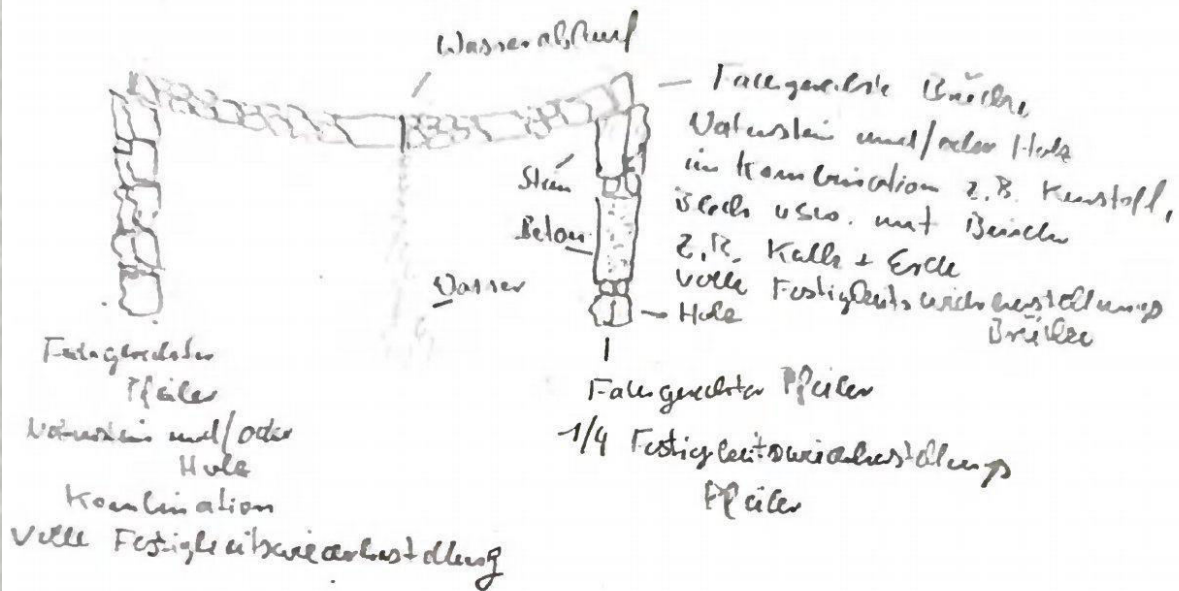 Wasserablauf
Fachgerechte Brücke,
Naturstein und/oder Holz
in Kombination z.B. Kunstoff,
Blech usw. mit
z.B. Kalk + Erde
volle Festigkeitswiederherstellung
Brücke
Stein
Beton
Wasser
Holz
Fachgerechter
Pfeiler
Naturstein und/oder
Holz
Kombination
Volle Festigkeitswiederherstellung
Fachgerechter Pfeiler
1/4 Festigkeitswiederherstellung
Pfeiler